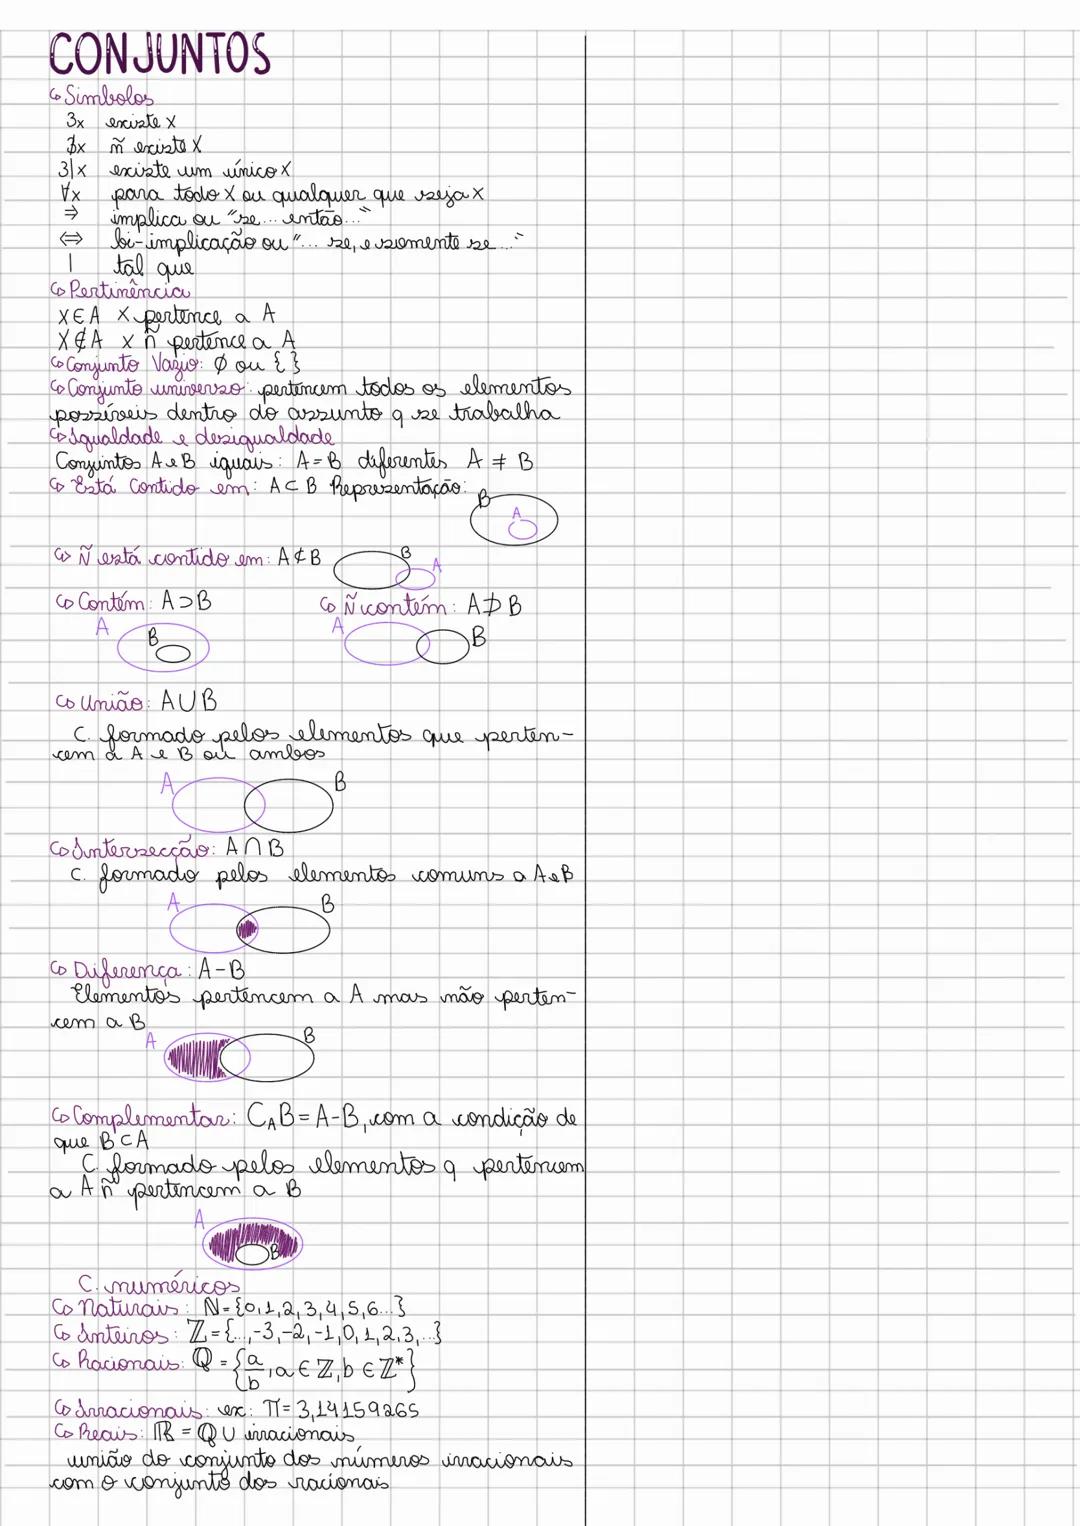 CONJUNTOS
↳ Símbolos
∃x existe x
∄x ñ existe x
∃|x existe um único x
∀x para todo x ou qualquer que seja x
⇒ implica ou "se... então..."
⇔ bi-implicação ou "... se, e somente se ..."
| tal que
↳ Pertinência
x∈A x pertence a A
x∉A x ñ pertence a A
↳ Conjunto Vazio: ∅ ou { }
↳ Conjunto universo: pertencem todos os elementos
possíveis dentro do assunto q se trabalha
↳ Igualdade e desigualdade
Conjuntos A e B iguais: A=B diferentes A ≠ B
↳ Está Contido em: A⊂B Representação:
B
A
↳ Ñ está contido em: A⊄B
B
A
↳ Contém: A⊃B ↳ Ñ contém: A⊅B
A B A B
↳ União: A∪B
C. formado pelos elementos que perten-
cem a A e B ou ambos
A B
↳ Intersecção: A∩B
C. formado pelos elementos comuns a A e B
A B
↳ Diferença: A-B
Elementos pertencem a A mas não perten-
cem a B
A B
↳ Complementar: C_A B = A-B, com a condição de
que B⊂A
C. formado pelos elementos q pertencem
a A ñ pertencem a B
A B
C. numéricos
↳ Naturais: ℕ={0,1,2,3,4,5,6...}
↳ Inteiros: ℤ={...,-3,-2,-1,0,1,2,3,...}
↳ Racionais: ℚ = {a/b, a ∈ ℤ, b ∈ ℤ*}
↳ Irracionais: ex: π=3,14159265
↳ Reais: ℝ = ℚ ∪ irracionais
união do conjunto dos números irracionais
com o conjunto dos racionais